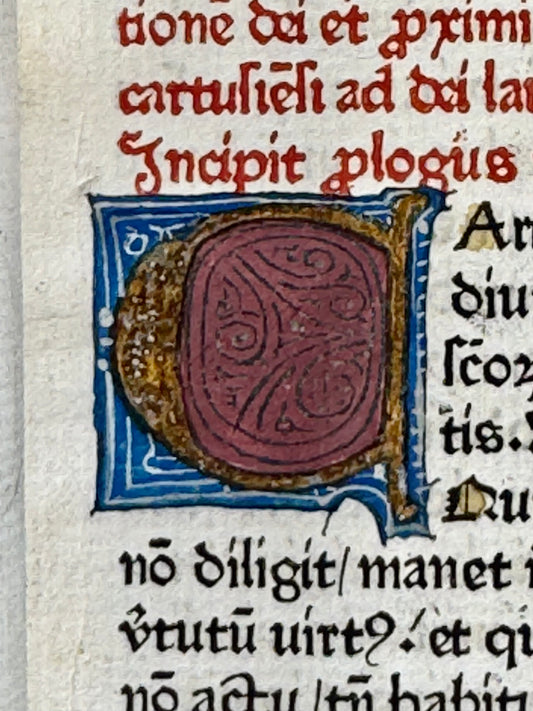 tionē dei et ꝓximi
cartusiēsi ad dei lau
Incipit ꝓlogus
C
Ari
diui
sc̄or
tis.
Nu
nō diligit/ manet i
v̓tutū uirtꝰ. et qu
nō actu /tn̄ habitu